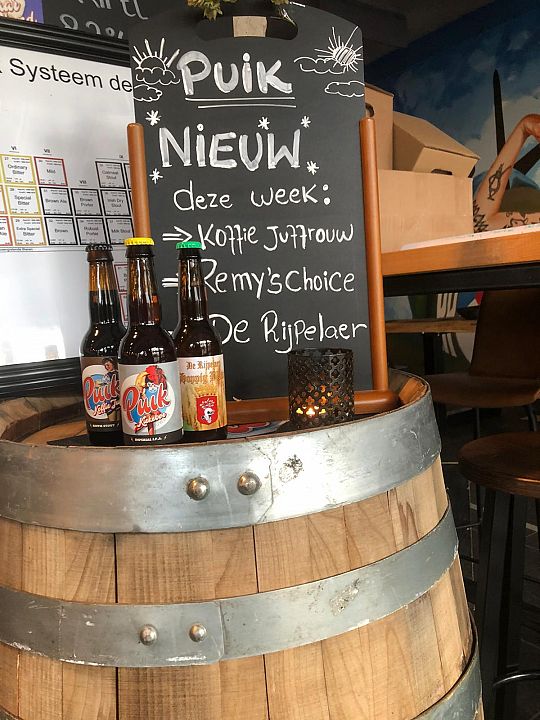 Systeem de
VI
VII
VIII
Ordinary Bitter
Mild
Oatmeal Stout
Special Bitter
Brown Ale
Brown Porter
Irish Dry Stout
Extra Special Bitter
Brown
Robust Porter
Milk Stout
Puik
NiEUW
deze week:
⇒ Koffie Juffrouw
⇒ Remy's Choice
De Rijpelaer
Puik
Puik
IMPERIAL I.P.A.
De Rijpelaer